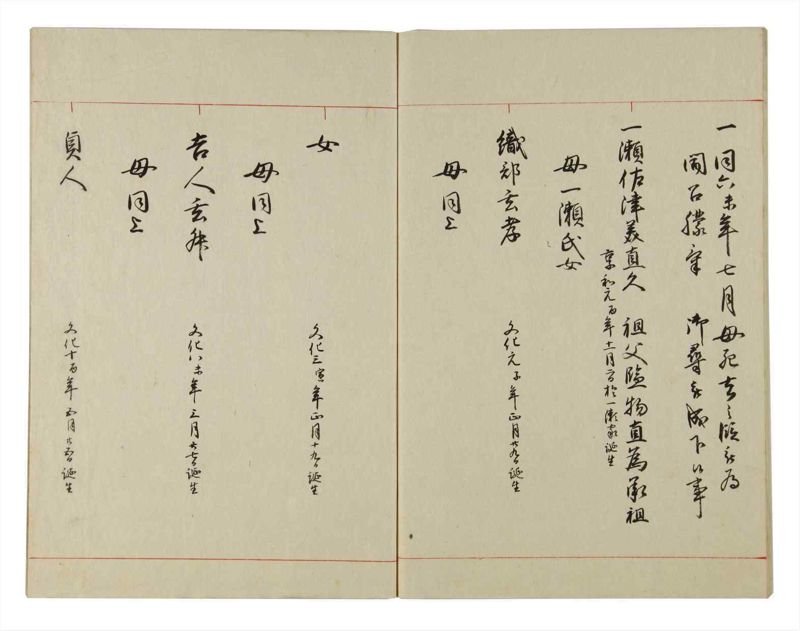 一同六未年七月母死去之段被為
聞召朦中 御尋被成下候事
一瀬佐津美直久 祖父監物直為承祖
享和元酉年十一月 於一瀬家誕生
母一瀬氏女
織部玄孝 文化元子年正月廿九日誕生
母同上
女 文化三寅年正月十九日誕生
母同上
吉人玄 文化八未年三月廿七日誕生
母同上
貞人 文化十酉年 月 誕生